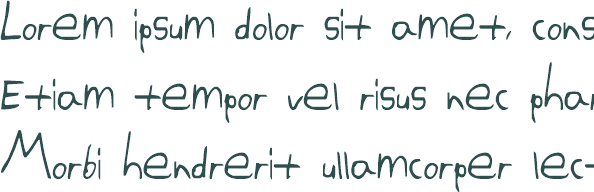 Lorem ipsum dolor sit amet, cons
Etiam tempor vel risus nec phar
Morbi hendrerit ullamcorper lec-